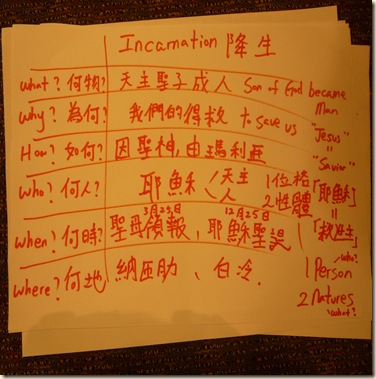 Incarnation 降生
what? 何物? 天主聖子成人 Son of God became Man
Why? 為何? 我們的得救 to save us "Jesus"
=
How? 如何? 因聖神,由瑪利亞 "Savior"
Who? 何人? 耶穌 天主 人 1位格 2性體 「耶穌」
=
3月25日 12月25日
when? 何時? 聖母領報, 耶穌聖誕 「救主」
where? 何地 納匝肋、白冷. 1 Person who?
2 Natures
what?